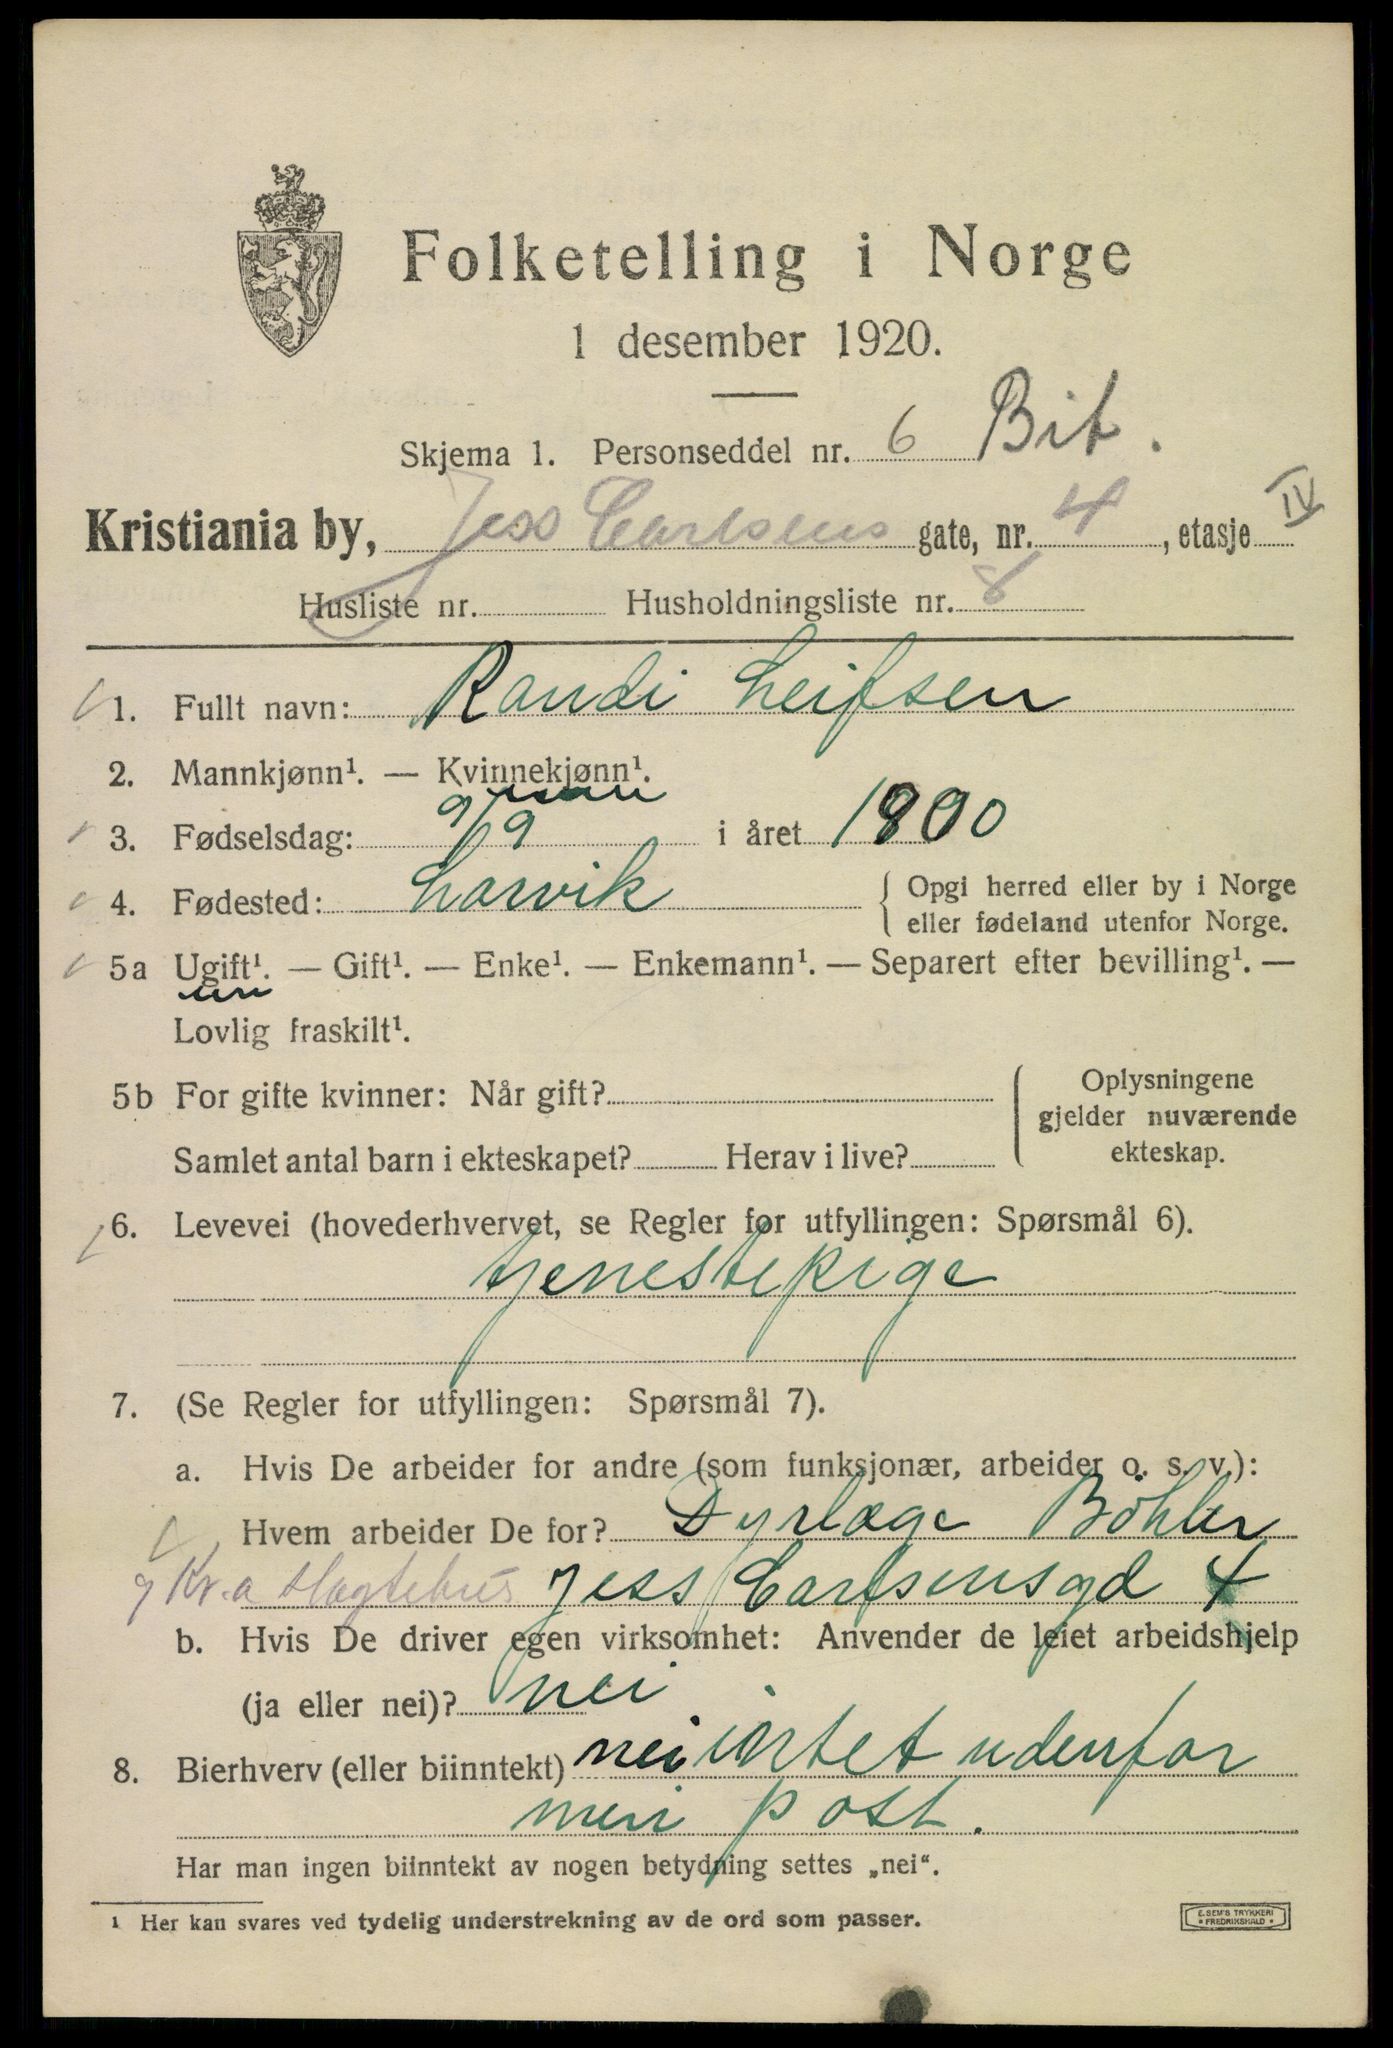 Folketelling i Norge
1 desember 1920.
Skjema 1. Personseddel nr. 6 Bit.
Kristiania by, Jess Carlsens gate, nr. 4, etasje IV
Husliste nr. Husholdningsliste nr. 8
1. Fullt navn: Randi Leifsen
2. Mannkjønn¹. — Kvinnekjønn¹.
3. Fødselsdag: 9/9 i året 1900
4. Fødested: Larvik { Opgi herred eller by i Norge
eller fødeland utenfor Norge.
5a Ugift¹. — Gift¹. — Enke¹. — Enkemann¹. — Separert efter bevilling¹. —
Lovlig fraskilt¹.
5b For gifte kvinner: Når gift? { Oplysningene
gjelder nuværende
Samlet antal barn i ekteskapet? Herav i live? ekteskap.
6. Levevei (hovederhvervet, se Regler for utfyllingen: Spørsmål 6).
tjenestepige
7. (Se Regler for utfyllingen: Spørsmål 7).
a. Hvis De arbeider for andre (som funksjonær, arbeider o. s. v.):
Hvem arbeider De for? Dyrlæge Böhler
Kr.a Slagtehus Jess Carlsensgd 4
b. Hvis De driver egen virksomhet: Anvender de leiet arbeidshjelp
(ja eller nei)? nei
8. Bierhverv (eller biinntekt) nei intet udenfor
min post.
Har man ingen biinntekt av nogen betydning settes „nei“.
¹ Her kan svares ved tydelig understrekning av de ord som passer.
E. SEM'S TRYKKERI
* FREDRIKSHALD *